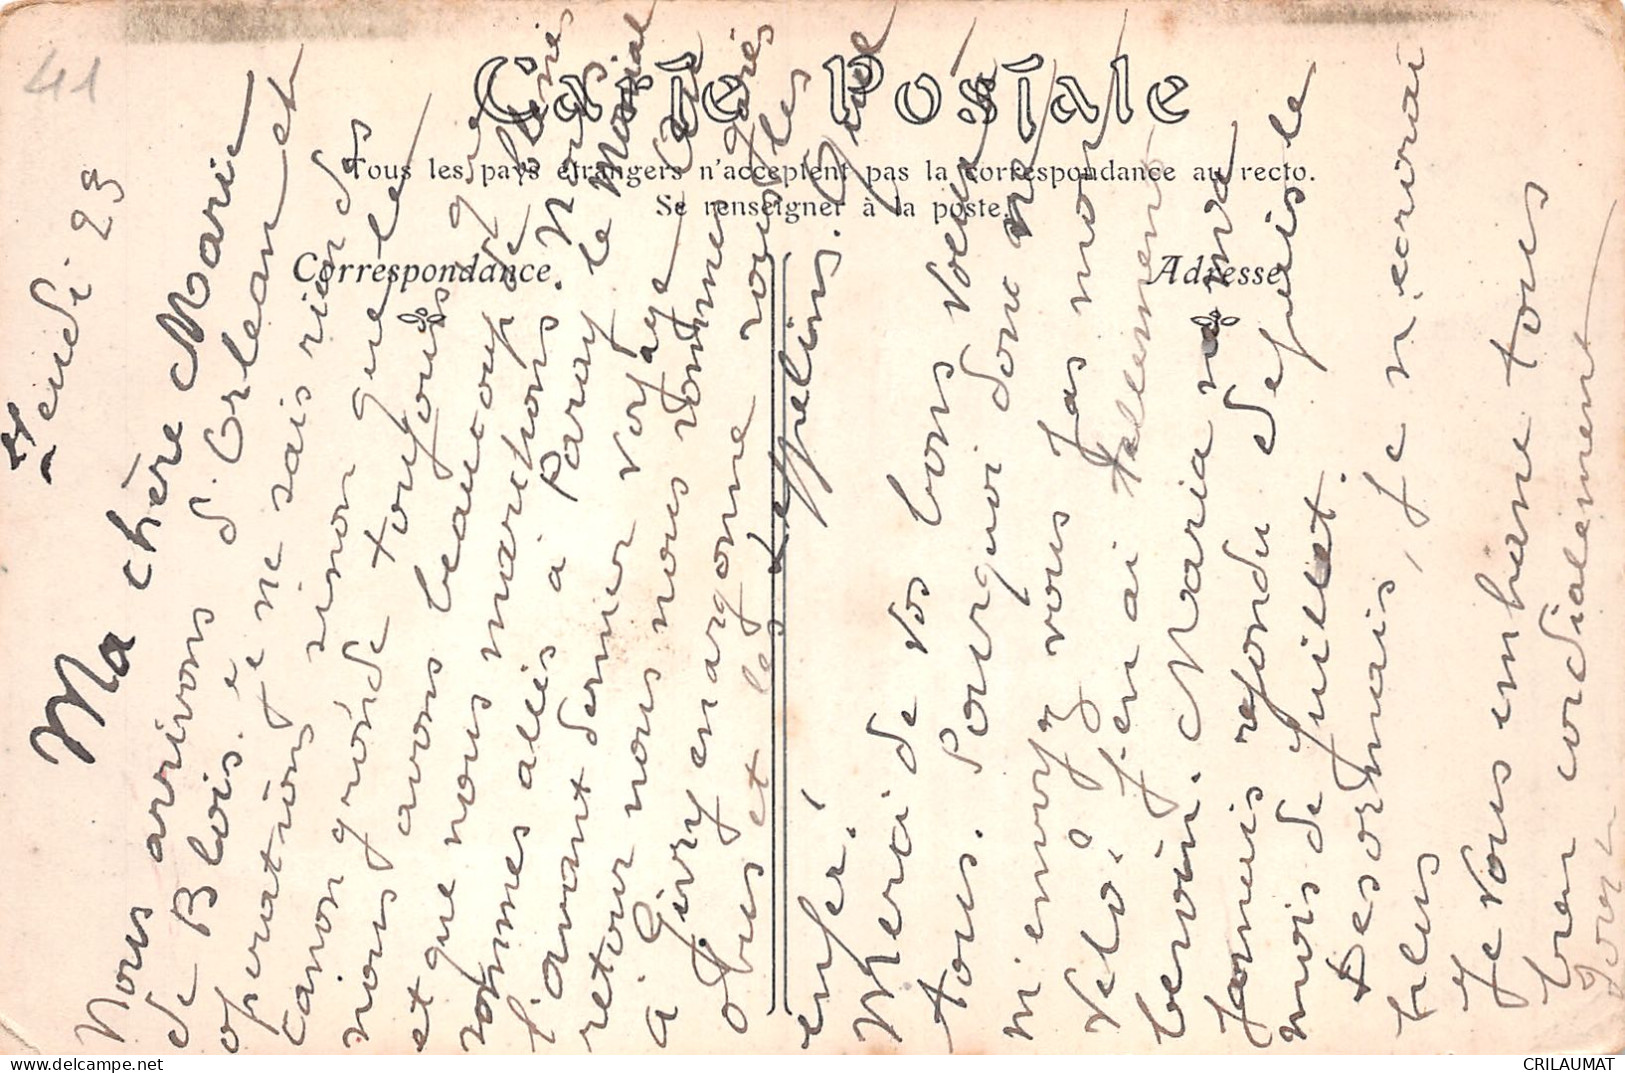 41
Carte Postale
Tous les pays étrangers n'acceptent pas la correspondance au recto.
Se renseigner à la poste.
Correspondance.
Adresse
Jeudi 23
Ma chère Marie
Nous arrivons d'Orléans et
de Blois. Je ne sais rien des
opérations sinon que le
canon gronde toujours
nous avons beaucoup
et que nous marchons. Nous
sommes allés à Paray le Monial
l'avant dernier voyage
retour nous nous sommes
à Givry en argonne sous les
obus et les zeppelins. Quel
enfer!
Merci de vos bons voeux à
tous. Pourquoi donc ne
m'envoyez vous pas mon
vélo? j'en ai tellement
besoin. Maria ne m'a
jamais répondu depuis le
mois de juillet.
Désormais, je n'écrirai
plus
Je vous embrasse tous
bien cordialement
CRILAUMAT